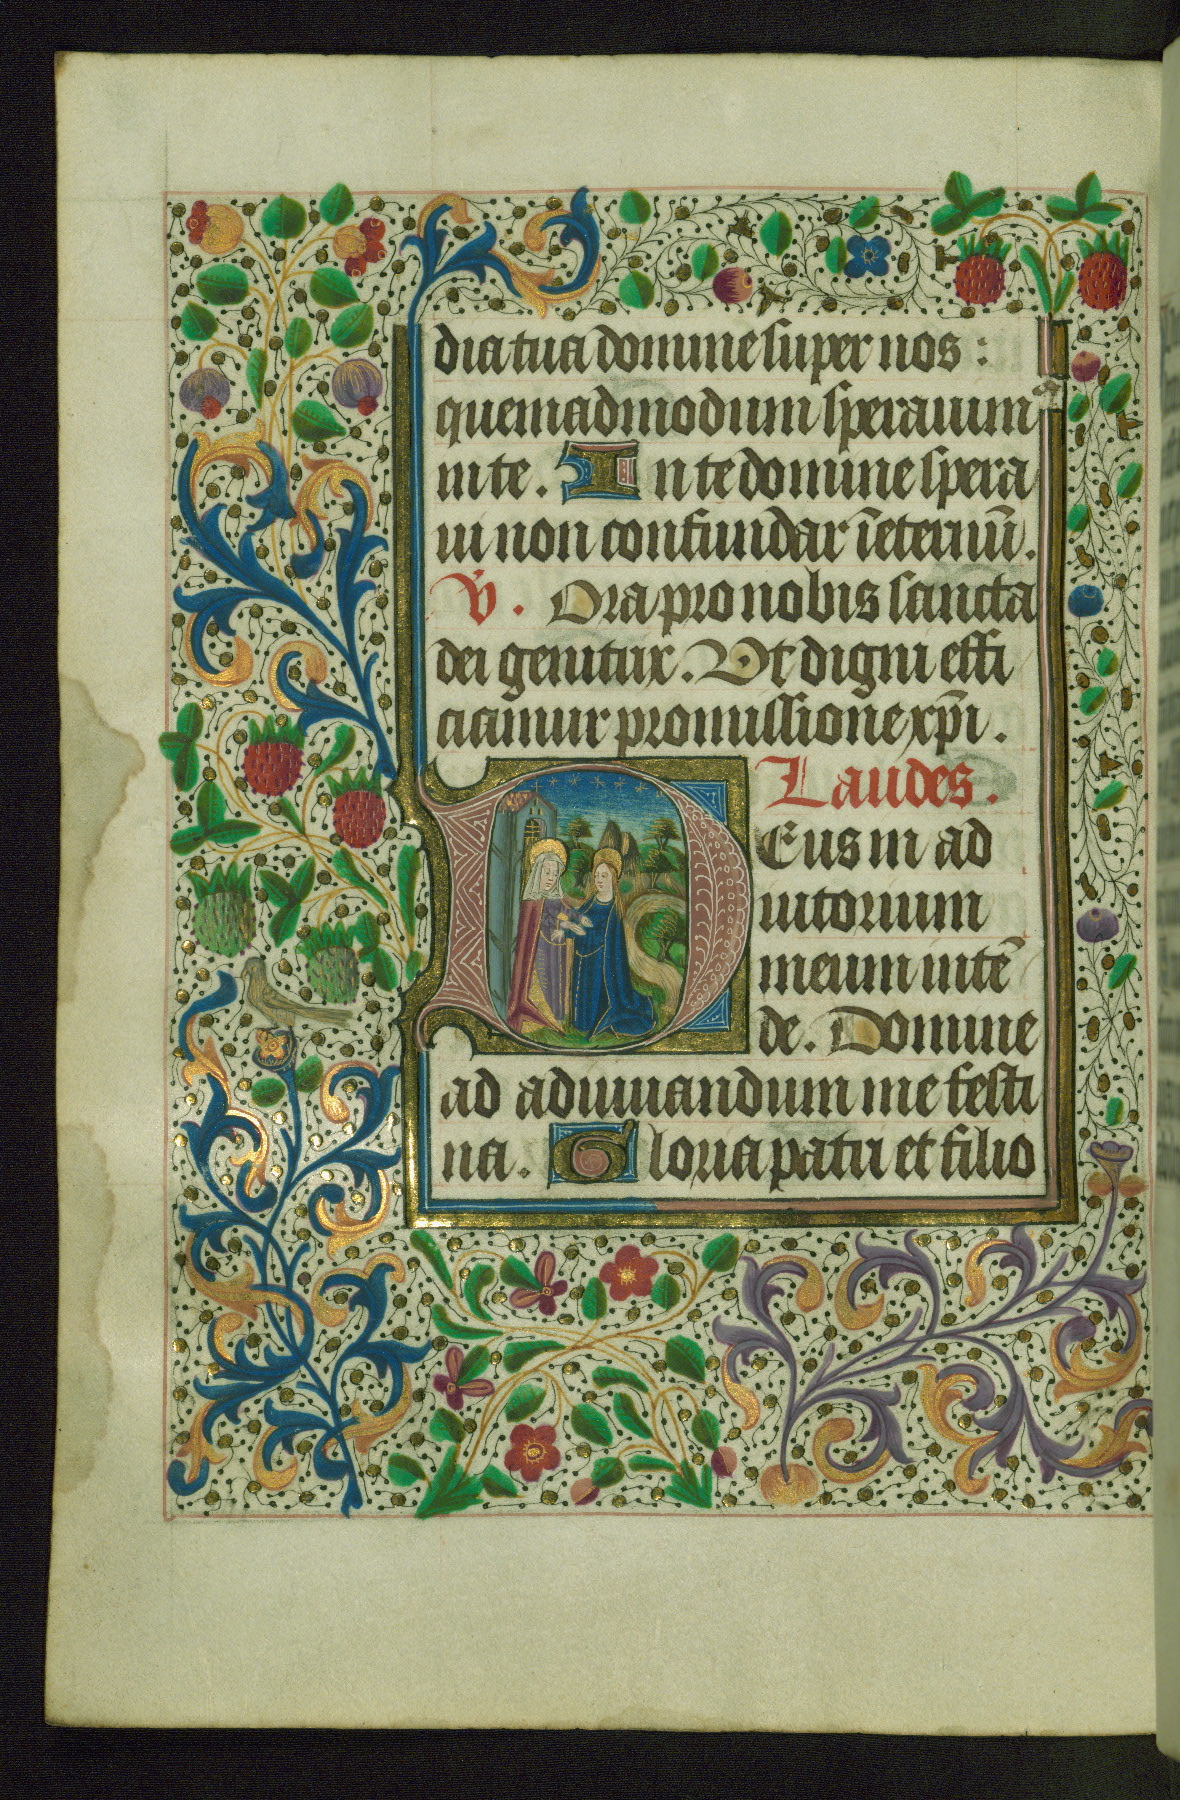 dia tua domine super nos :
quemadmodum sperauim
in te . In te domine spera
ui non confundar ī eternū .
V̇ . Ora pro nobis sancta
dei genitux . Vt digni effi
ciamur promissione xp̄i .
Laudes .
DEus in ad
iutorium
meum intē
de . Domine
ad adiuuandum me festi
na . Gloria patri et filio